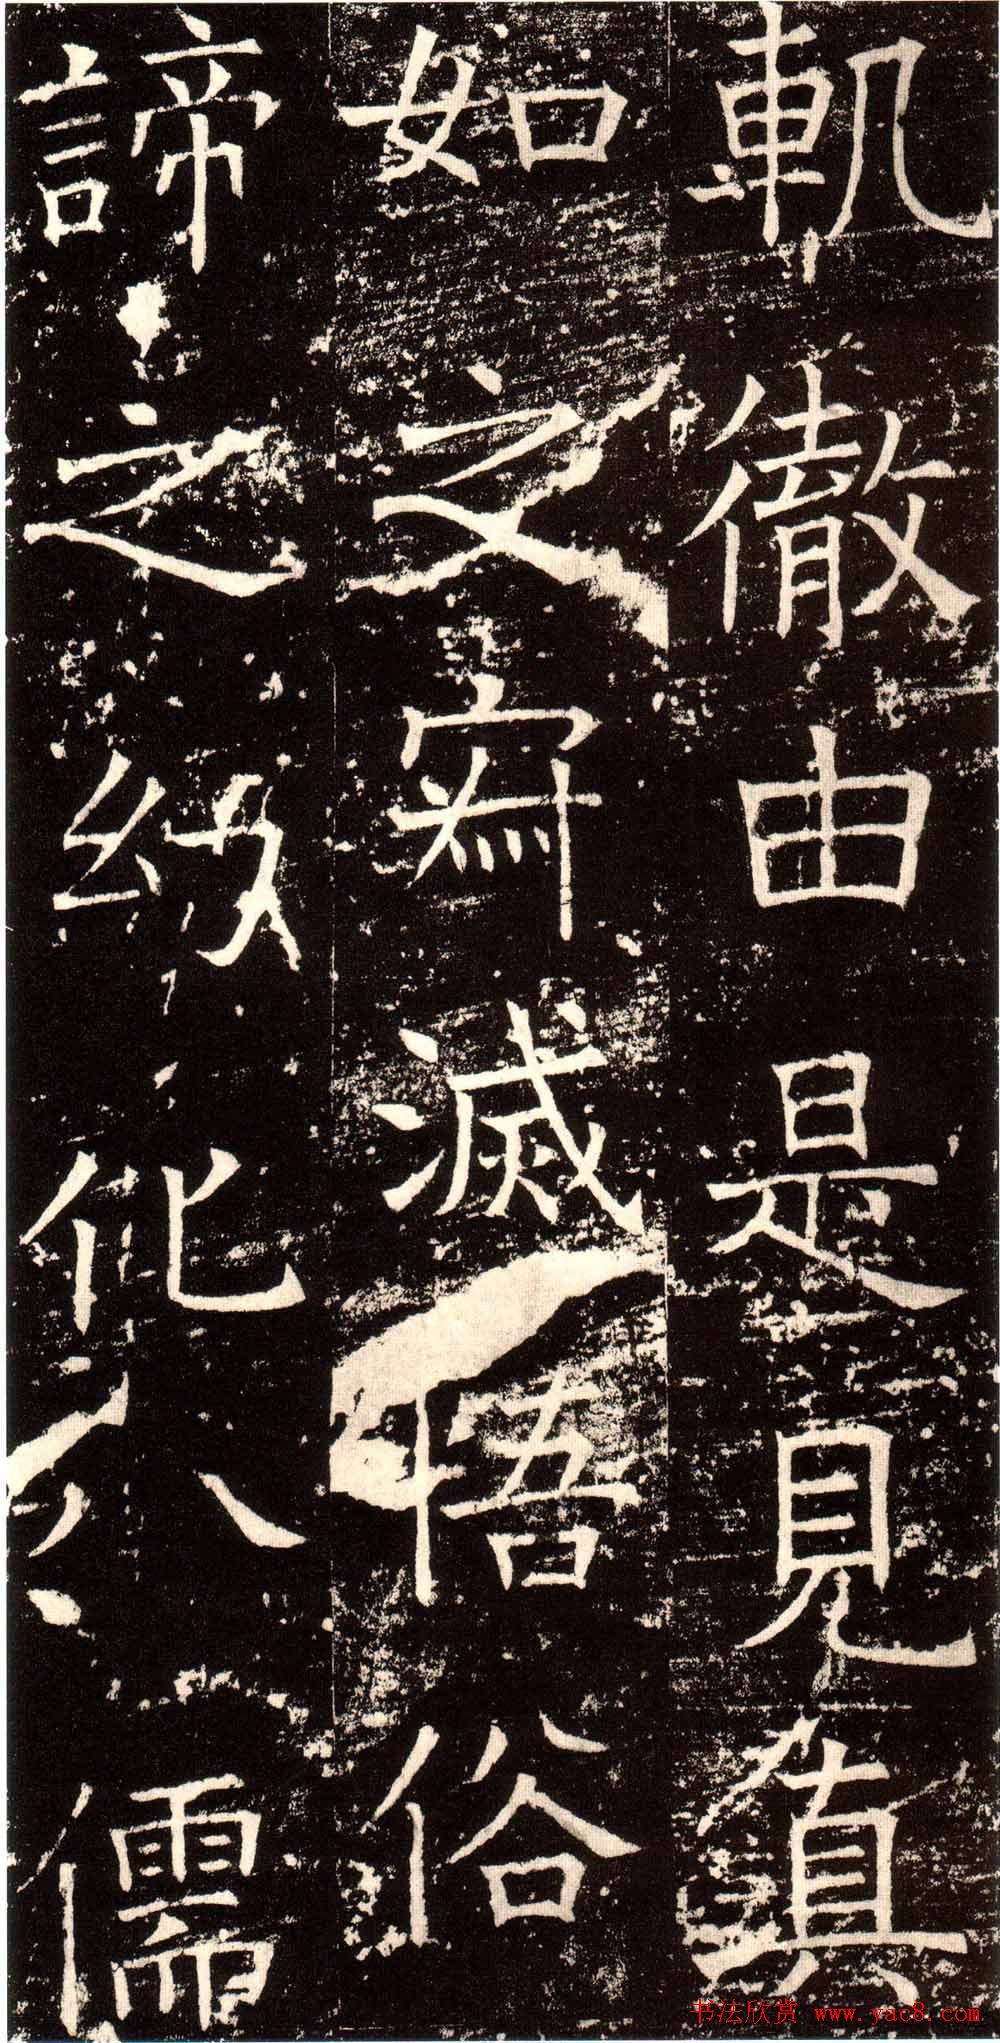 軌徹由是見真
如之寂滅悟俗
諦之幻化八儒
书法欣赏 www.yac8.com